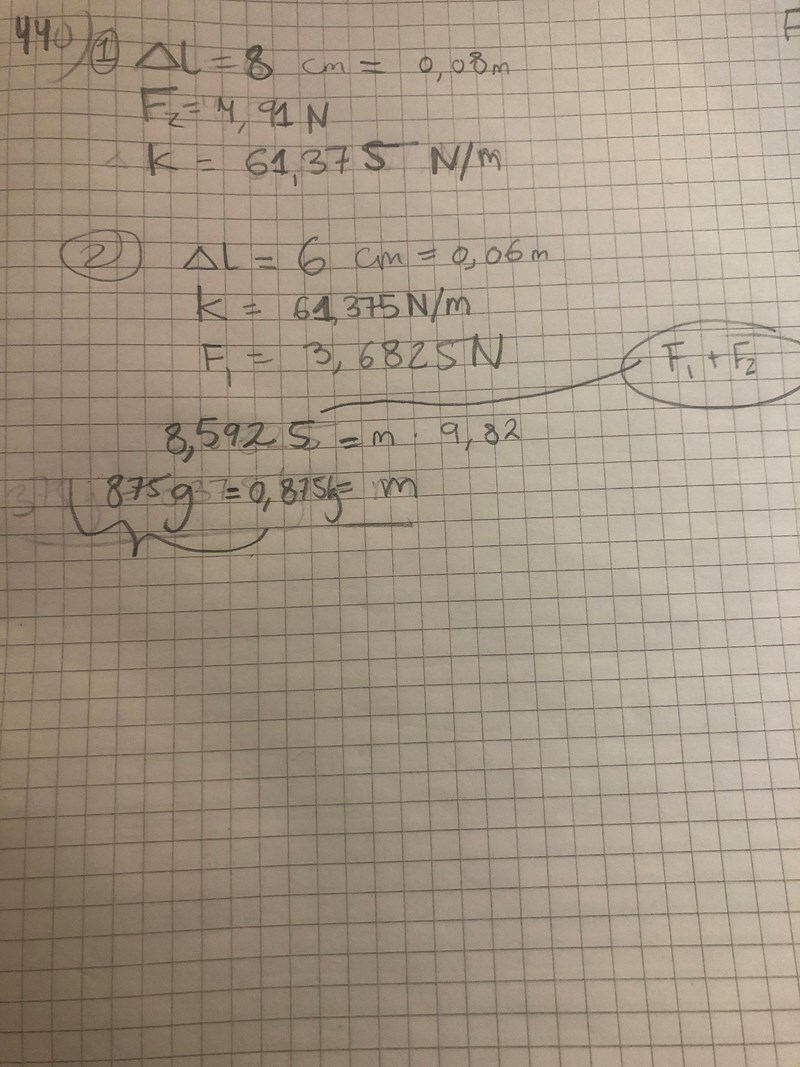 440) ① Δl = 8 cm = 0,08m
F₂ = 4,91 N
k = 61,375 N/m
② Δl = 6 cm = 0,06m
k = 61,375 N/m
F₁ = 3,6825 N
F₁ + F₂
8,5925 = m · 9,82
875g = 0,875kg = m